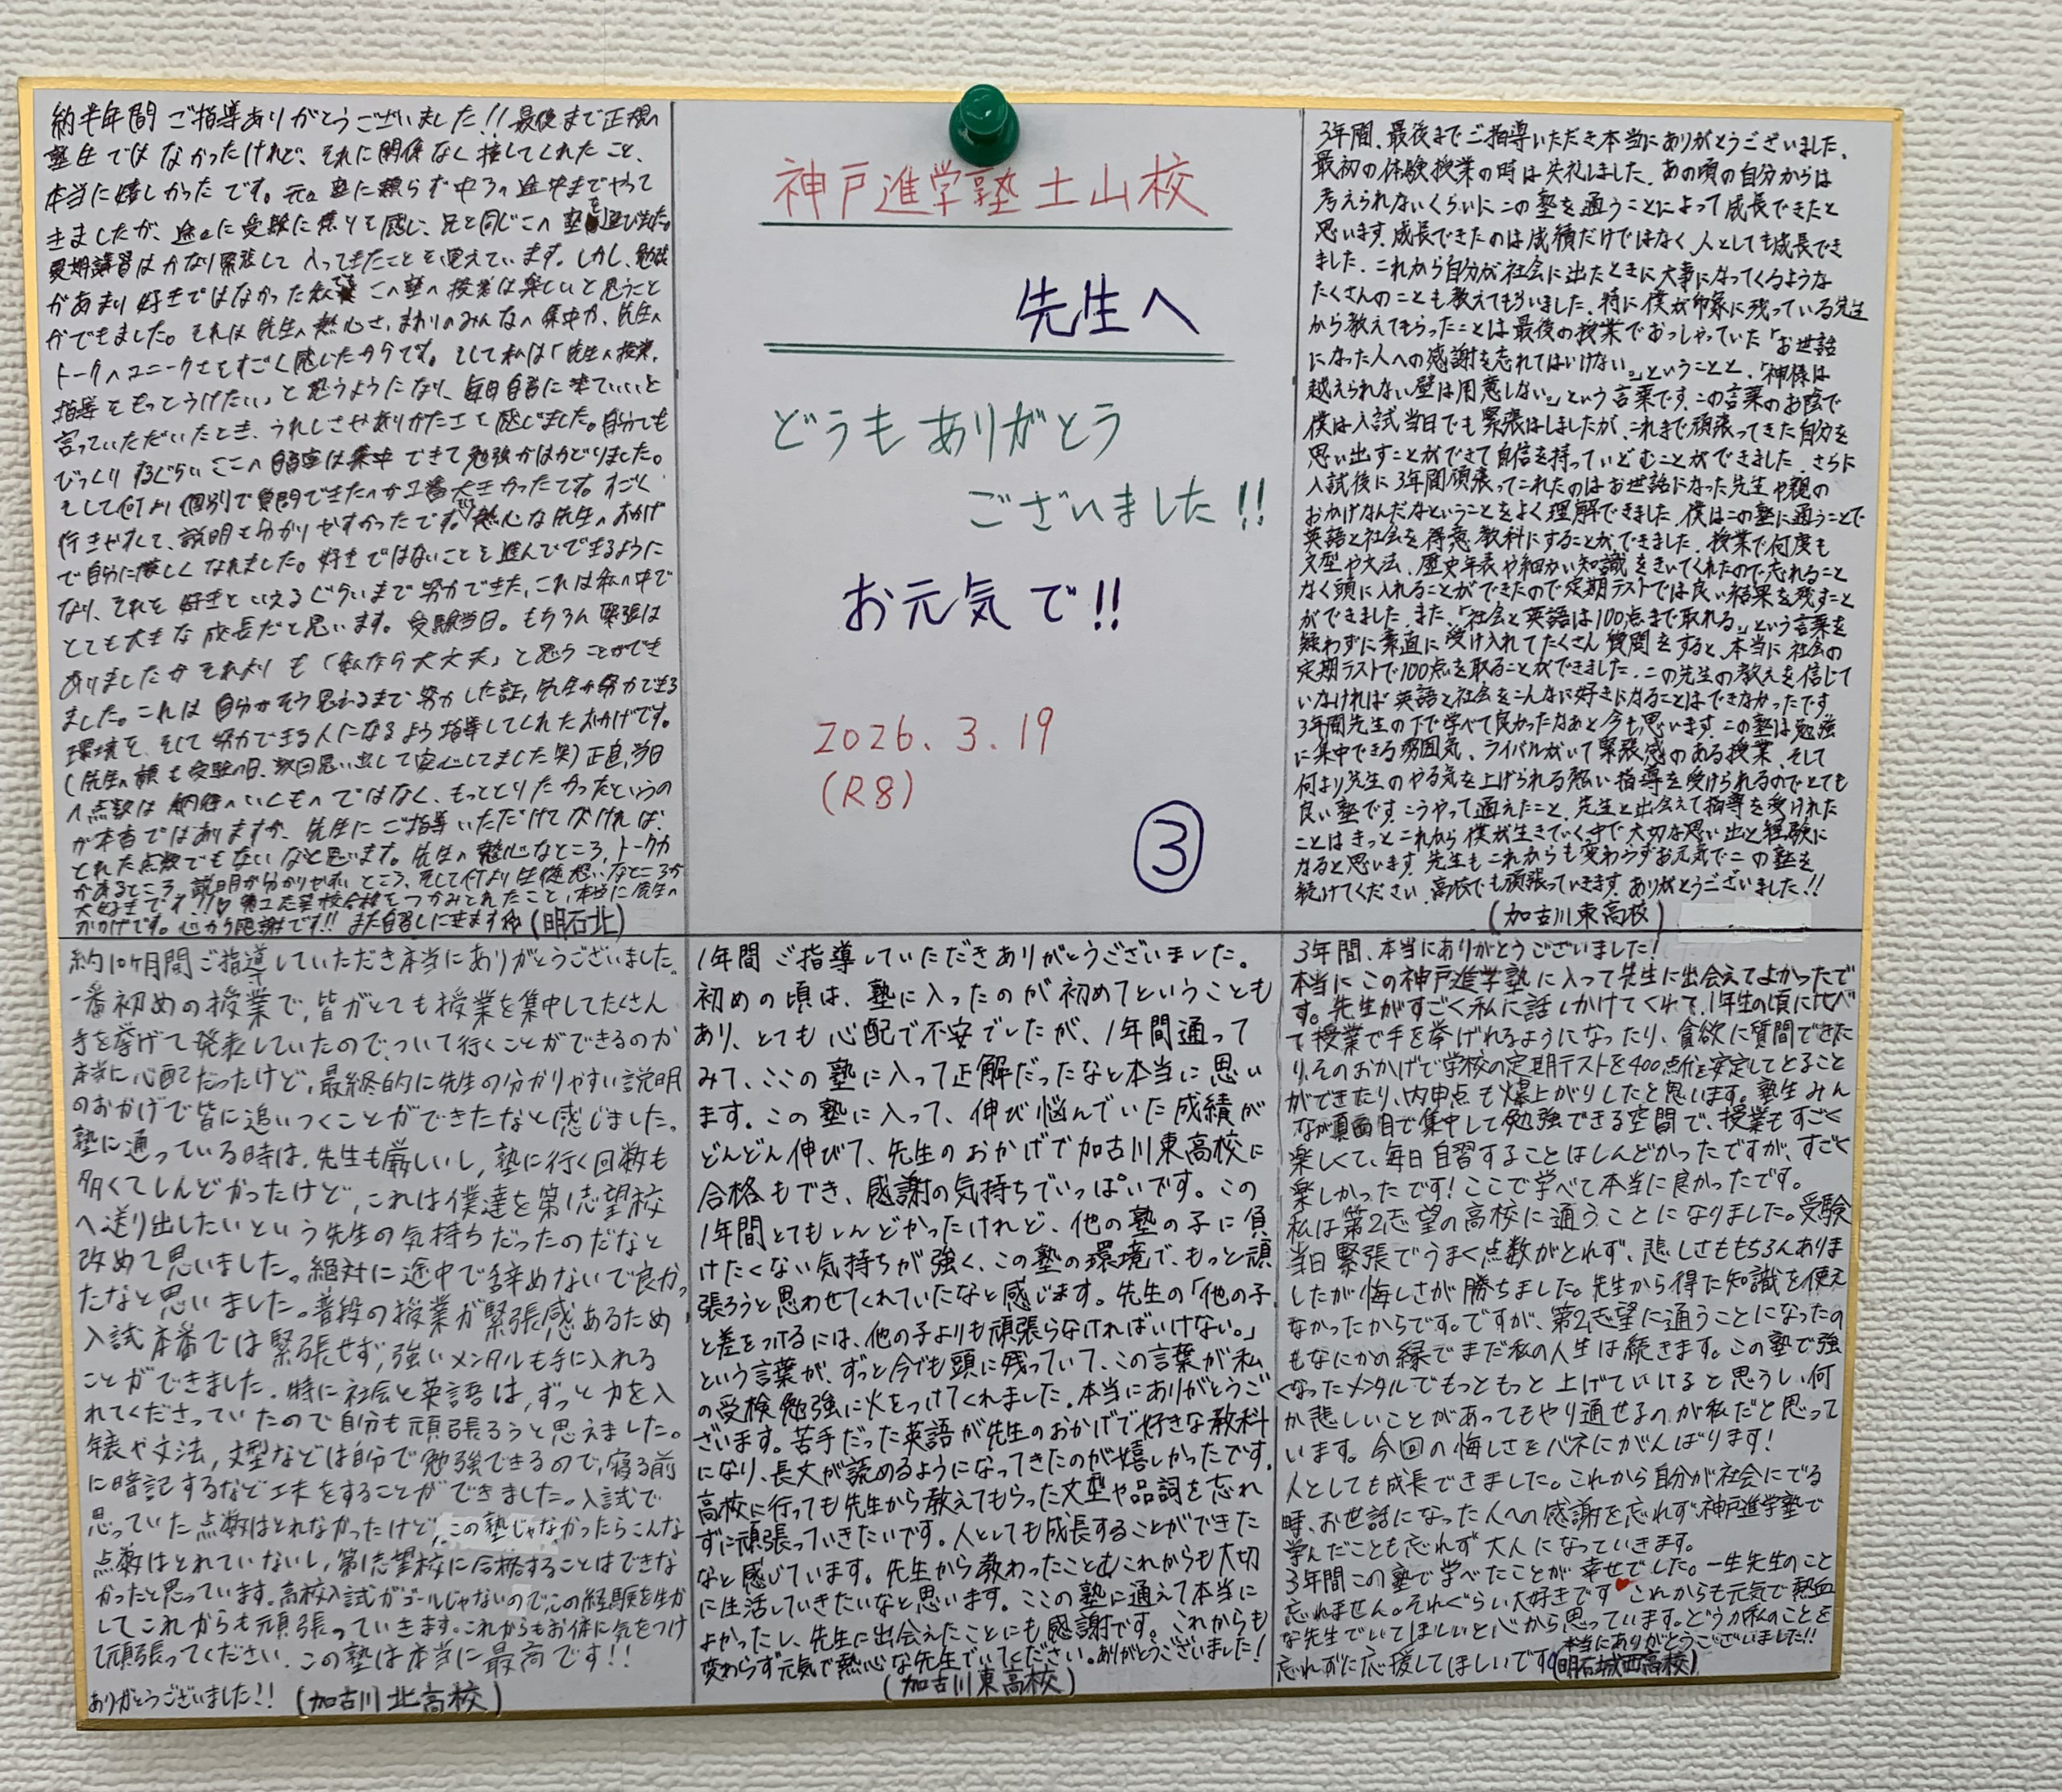 約半年間ご指導ありがとうございました!!最後まで正規の
塾生ではなかったけれど、それに関係なく接してくれたこと、
本当に嬉しかったです。元々塾に頼らず中3の途中までやって
きましたが、途中に受験に焦りを感じ、兄と同じこの塾を選びました。
夏期講習はかなり緊張して入ってきたことを覚えています。しかし、勉強
があまり好きではなかった私でさえこの塾の授業は楽しいと思うこと
ができました。それは先生の熱心さ、まわりのみんなの集中力、先生の
トークのユニークさをすごく感じたからです。そして私は「先生の授業、
指導をもっとうけたい」と思うようになり、毎日自習に来ていいと
言っていただいたとき、うれしさやありがたさを感じました。自分でも
びっくりするぐらいここの自習室は集中できて勉強がはかどりました。
そして何より個別で質問できたのが1番大きかったです。すごく
行きやすくて、説明も分かりやすかったです。熱心な先生のおかげ
で自分に厳しくなれました。好きではないことを進んでできるように
なり、それを好きといえるぐらいまで努力できた、これは私の中で
とても大きな成長だと思います。受験当日。もちろん緊張は
ありましたがそれよりも「私なら大丈夫」と思うことができ
ました。これは自分がそう思えるまで努力した証、先生が努力できる
環境を、そして努力できる人になるよう指導してくれたおかげです。
(先生の顔も受験の日、数回思い出して安心してました笑)正直、当日
の点数は納得のいくものではなく、もっととりたかったというの
が本音ではありますが、先生にご指導いただけてなければ、
とれた点数でもないなと思います。先生の熱心なところ、トーク力
があるところ、説明が分かりやすいところ、そして何より生徒想いなところが
大好きです!!♡第1志望校合格をつかみとれたこと、本当に先生の
おかげです。心から感謝です!!また自習しに来ますね(明石北)
神戸進学塾土山校
先生へ
どうもありがとう
ございました!!
お元気で!!
2026.3.19
(R8)
③
3年間、最後までご指導いただき本当にありがとうございました。
最初の体験授業の時は失礼しました。あの頃の自分からは
考えられないくらいにこの塾を通うことによって成長できたと
思います。成長できたのは成績だけではなく、人としても成長でき
ました。これから自分が社会に出たときに大事になってくるような
たくさんのことも教えてもらいました。特に僕が印象に残っている先生
から教えてもらったことは最後の授業でおっしゃっていた「お世話
になった人への感謝を忘れてはいけない。」ということと、「神様は
越えられない壁は用意しない。」という言葉です。この言葉のお陰で
僕は入試当日でも緊張はしましたが、これまで頑張ってきた自分を
思い出すことができて自信を持っていどむことができました。さらに
入試後に3年間頑張ってこれたのはお世話になった先生や親の
おかげなんだなということをよく理解できました。僕はこの塾に通うことで
英語と社会を得意教科にすることができました。授業で何度も
文型や文法、歴史年表や細かい知識をきいてくれたので忘れること
なく頭に入れることができたので定期テストでは良い結果を残すこと
ができました。また、「社会と英語は100点まで取れる。」という言葉を
疑わずに素直に受け入れてたくさん質問をすると、本当に社会の
定期テストで100点を取ることができました。この先生の教えを信じて
いなければ英語と社会をこんなに好きになることはできなかったです。
3年間先生の下で学べて良かったなぁと今も思います。この塾は勉強
に集中できる雰囲気、ライバルがいて緊張感のある授業、そして
何より先生のやる気を上げられる強い指導を受けられるのでとても
良い塾です。こうやって通えたこと、先生と出会えて指導を受けれた
ことはきっとこれから僕が生きていく中で大切な思い出と経験に
なると思います。先生もこれからも変わらずお元気でこの塾を
続けてください。高校でも頑張っていきます。ありがとうございました!!
(加古川東高校)
約10ヶ月間ご指導していただき本当にありがとうございました。
一番初めの授業で、皆がとても授業を集中してたくさん
手を挙げて発表していたので、ついて行くことができるのか
本当に心配だったけど、最終的に先生の分かりやすい説明
のおかげで皆に追いつくことができたなと感じました。
塾に通っている時は、先生も厳しいし、塾に行く回数も
多くてしんどかったけど、これは僕達を第1志望校
へ送り出したいという先生の気持ちだったのだなと
改めて思いました。絶対に途中で辞めないで良かっ
たなと思いました。普段の授業が緊張感あるため
入試本番では緊張せず、強いメンタルも手に入れる
ことができました。特に社会と英語は、ずっと力を入
れてくださっていたので自分も頑張ろうと思えました。
年表や文法、文型などは自分で勉強できるので、寝る前
に暗記するなど工夫をすることができました。入試で
思っていた点数はとれなかったけど、この塾じゃなかったらこんな
点数はとれていないし、第1志望校に合格することはできな
かったと思っています。高校入試がゴールじゃないので、この経験を生か
してこれからも頑張っていきます。これからもお体に気をつけ
て頑張ってください。この塾は本当に最高です!!
ありがとうございました!!(加古川北高校)
1年間ご指導していただきありがとうございました。
初めの頃は、塾に入ったのが初めてということも
あり、とても心配で不安でしたが、1年間通って
みて、ここの塾に入って正解だったなと本当に思い
ます。この塾に入って、伸び悩んでいた成績が
どんどん伸びて、先生のおかげで加古川東高校に
合格もでき、感謝の気持ちでいっぱいです。この
1年間とてもしんどかったけれど、他の塾の子に負
けたくない気持ちが強く、この塾の環境で、もっと頑
張ろうと思わせてくれていたなと感じます。先生の「他の子
と差をつけるには、他の子よりも頑張らなければいけない。」
という言葉が、ずっと今でも頭に残っていて、この言葉が私
の受検勉強に火をつけてくれました。本当にありがとうご
ざいます。苦手だった英語が先生のおかげで好きな教科
になり、長文が読めるようになってきたのが嬉しかったです。
高校に行っても先生から教えてもらった文型や品詞を忘れ
ずに頑張っていきたいです。人としても成長することができた
なと感じています。先生から教わったことをこれからも大切
に生活していきたいなと思います。ここの塾に通えて本当に
よかったし、先生に出会えたことにも感謝です。これからも
変わらず元気で熱心な先生でいてください。ありがとうございました!
(加古川東高校)
3年間、本当にありがとうございました!
本当にこの神戸進学塾に入って先生に出会えてよかったで
す。先生がすごく私に話しかけてくれて、1年生の頃に比べ
て授業で手を挙げれるようになったり、貪欲に質問できた
り、そのおかげで学校の定期テストを400点代を安定してとること
ができたり、内申点も爆上がりしたと思います。塾生みん
なが真面目で集中して勉強できる空間で、授業もすごく
楽しくて、毎日自習することはしんどかったですが、すごく
楽しかったです!ここで学べて本当に良かったです。
私は第2志望の高校に通うことになりました。受験
当日緊張でうまく点数がとれず、悲しさももちろんありま
したが悔しさが勝ちました。先生から得た知識を使え
なかったからです。ですが、第2志望に通うことになったの
もなにかの縁でまだ私の人生は続きます。この塾で強
くなったメンタルでもっともっと上げていけると思うし、何
か悲しいことがあってもやり通せるのが私だと思って
います。今回の悔しさをバネにがんばります!
人としても成長できました。これから自分が社会にでる
時、お世話になった人への感謝を忘れず、神戸進学塾で
学んだことも忘れず大人になっていきます。
3年間この塾で学べたことが幸せでした。一生先生のこと
忘れません。それぐらい大好きです♥これからも元気で熱血
な先生でいてほしいと心から思っています。どうか私のことを
忘れずに応援してほしいです。本当にありがとうございました!!
(明石城西高校)